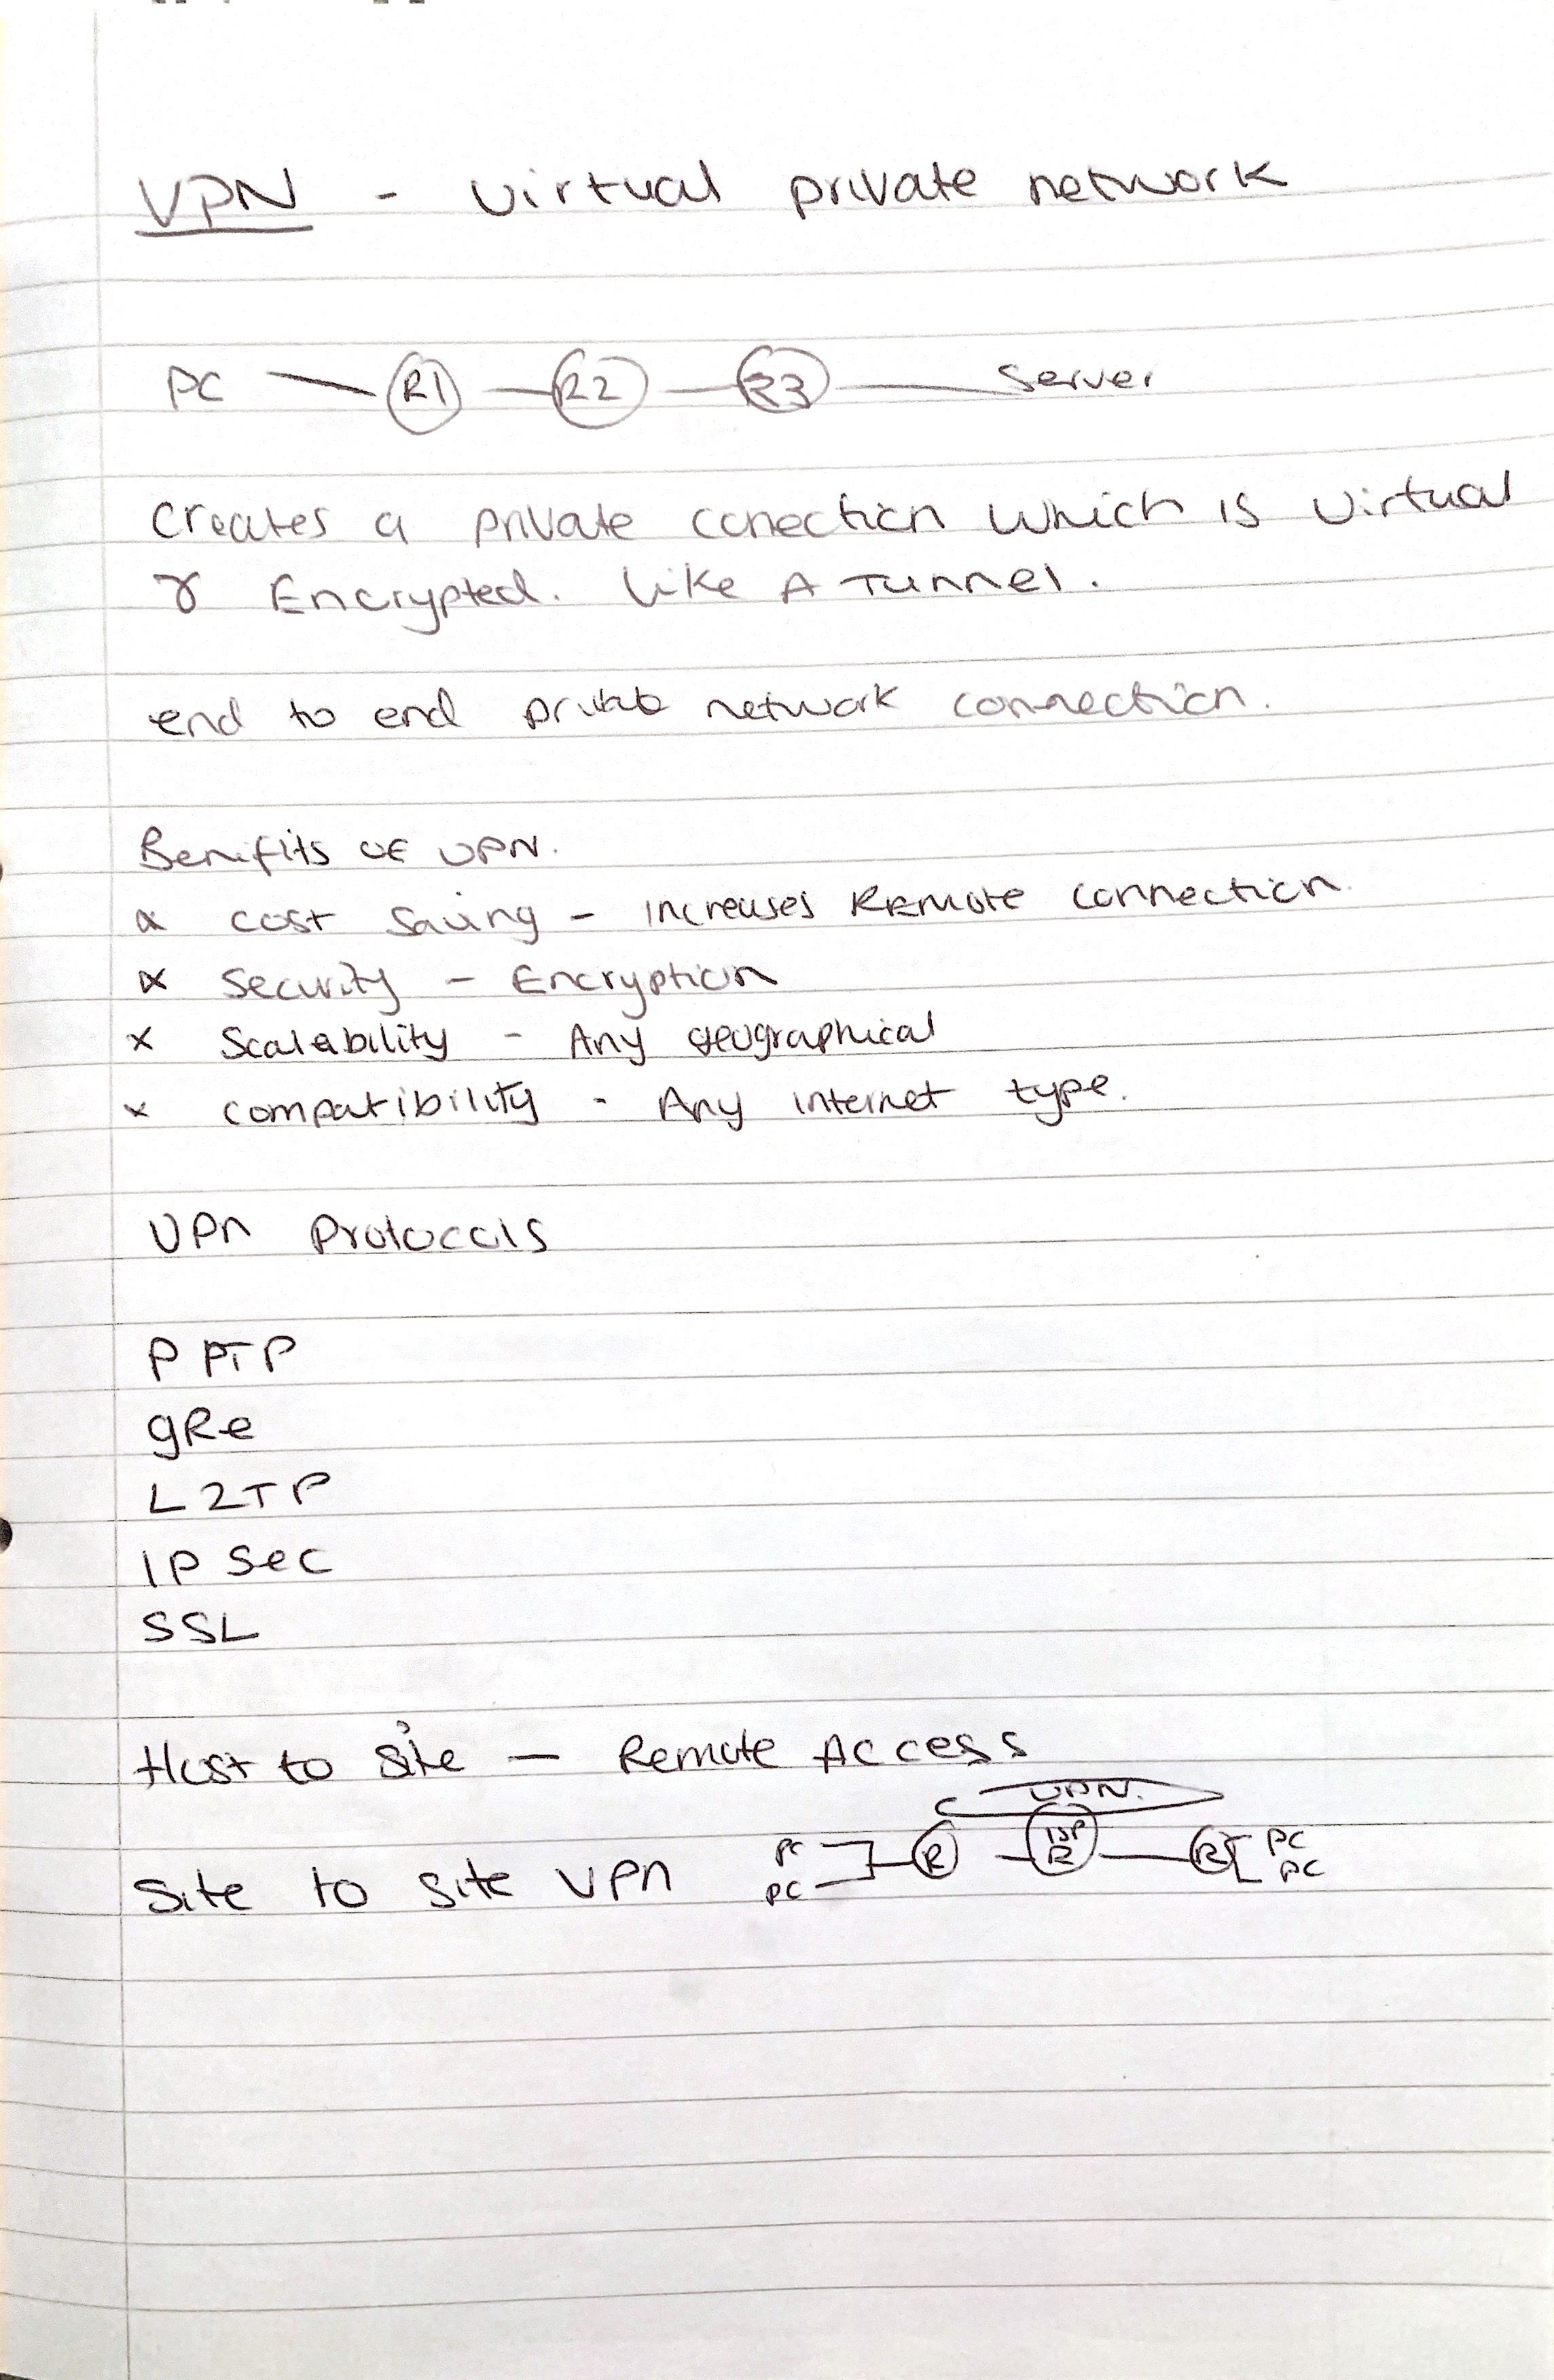 VPN - virtual private network
PC R1 R2 R3 Server
Creates a private conection which is virtual
& Encrypted. Like A Tunnel.
end to end private network connection.
Benifits of VPN.
x cost saving - increases Remote connection.
x Security - Encryption
x Scalability - Any geographical
x compatibility - Any internet type.
VPN Protocols
PPTP
gRe
L2TP
IP Sec
SSL
Host to Site - Remote Access
VPN.
Site to Site VPN PC PC R ISP R R PC PC